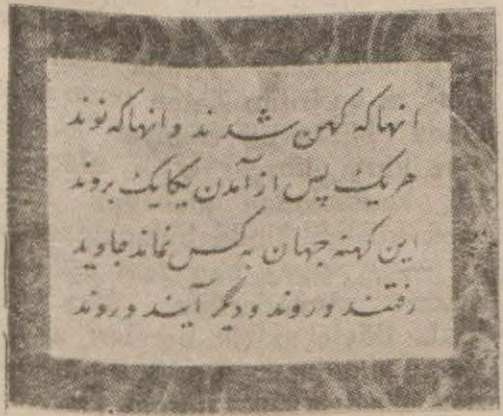 انها که کهن شدند و انها که نوند
هر یک پس از آمدن یکایک بروند
این کهنه جهان به کس نماند جاوید
رفتند و روند و دیگر آیند و روند